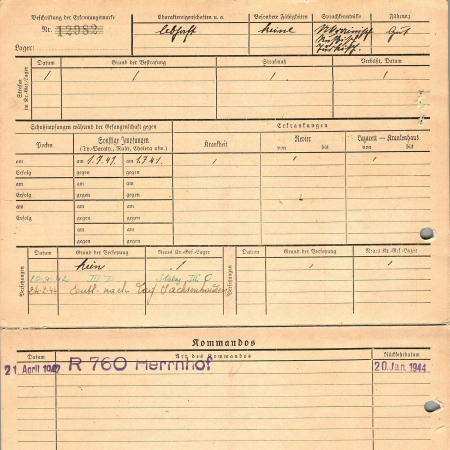 Beschriftung der Erkennungsmarke
Nr. 12982
Lager:
Charaktereigenschaften u. a.
lebhaft
Besondere Fähigkeiten
keine
Sprachkenntnisse
Führung
Gut
Strafen im Kr.-Gef.-Lager
Datum Grund der Bestrafung Strafmaß Verbüßt, Datum
Schutzimpfungen während der Gefangenschaft gegen
Erkrankungen
Pocken
Sonstige Impfungen
(Ty.-Paratr., Ruhr, Cholera usw.)
Krankheit
Revier
von bis
Lazarett — Krankenhaus
von bis
am am 1.7.41. am 1.7.41.
Erfolg gegen gegen
am am am
Erfolg gegen gegen
am am am
Erfolg gegen gegen
am am
gegen gegen
Versetzungen
Datum Grund der Versetzung Neues Kr.-Gef.-Lager
Versetzungen
Datum Grund der Versetzung Neues Kr.-Gef.-Lager
Stalag III C
Entl. nach Sachsenhausen
Kommandos
Datum Art des Kommandos Rückkehrdatum
21. April 1942 R 760 Herrnhof 20. Jan. 1944